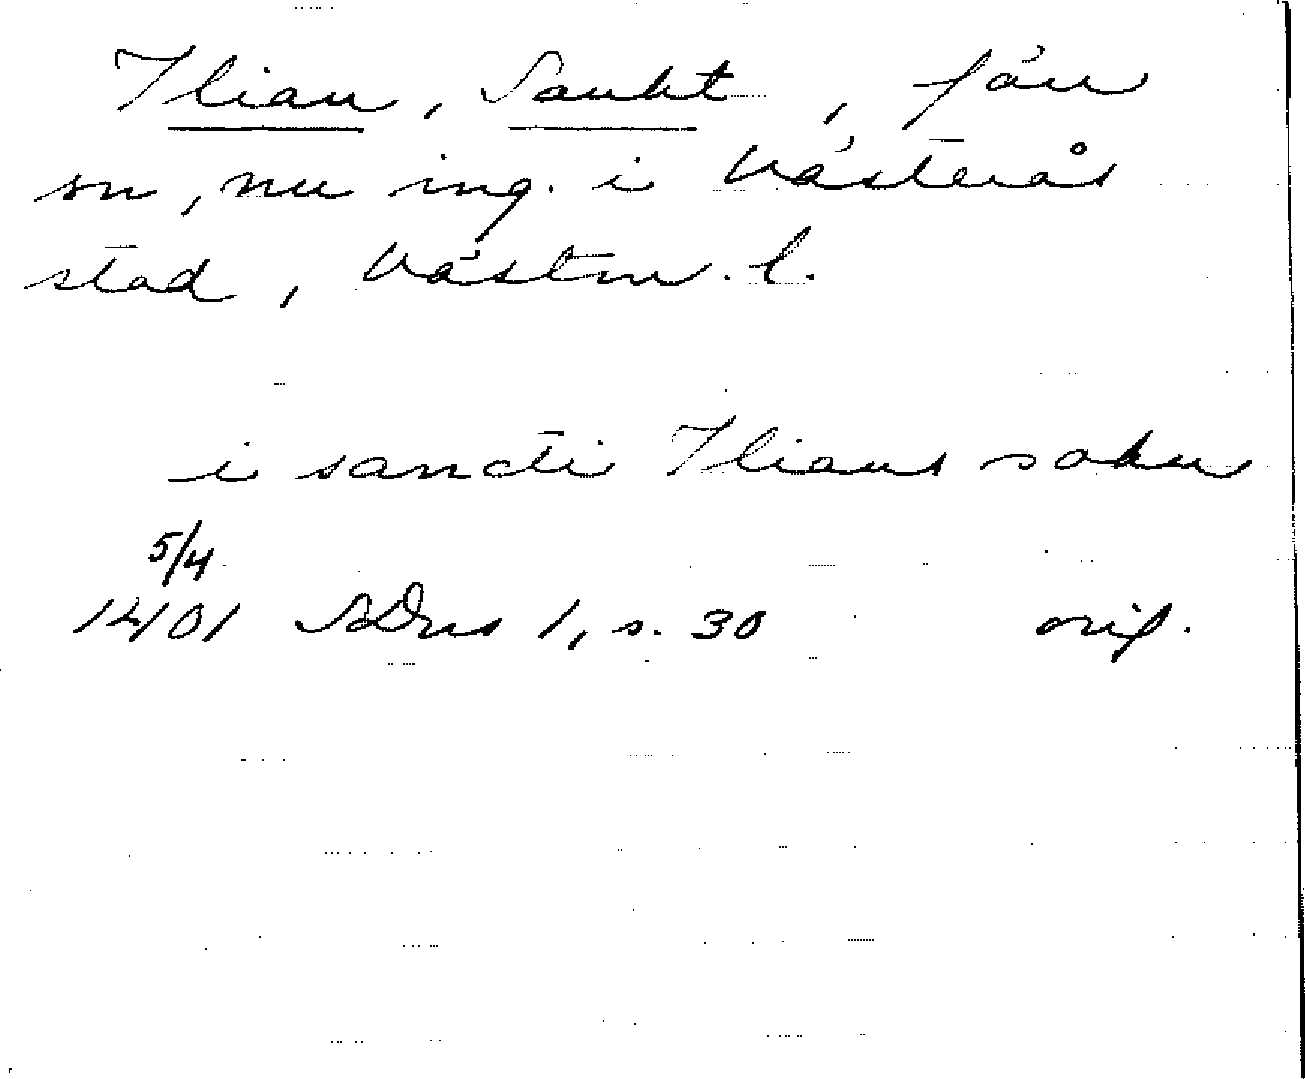 Ilian, Sankt, förr
sn, nu ing. i Västerås
stad, Västm. l.
i sancti Ilians sokn
5/4
1401 SDns 1, s. 30 orig.